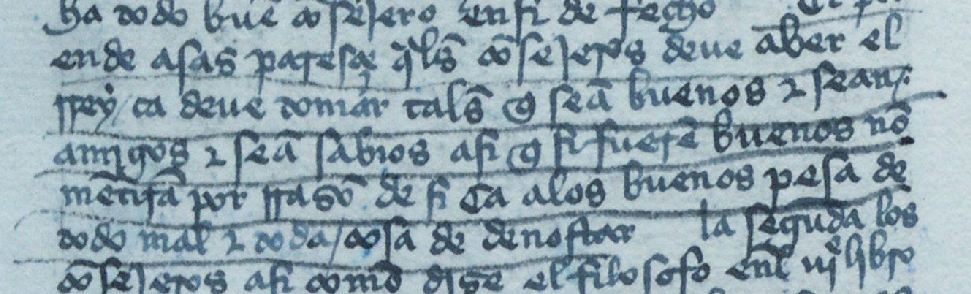 ha todo buē cōsejero en fi de fecho
ende asas paresçe q̄lēs cōsejeros deve aber el
rrey / ca deve tomar talēs q̄ seā buenos ⁊ sean
amigos ⁊ seā sabios asi q̄ si fuerē buenos nō
mētirā por rrasō de si Ca a los buenos pesa de
todo mal ⁊ toda / cosa de denostar la segūda los
cōsejeros asi como dise el filosofo enl iijº libro